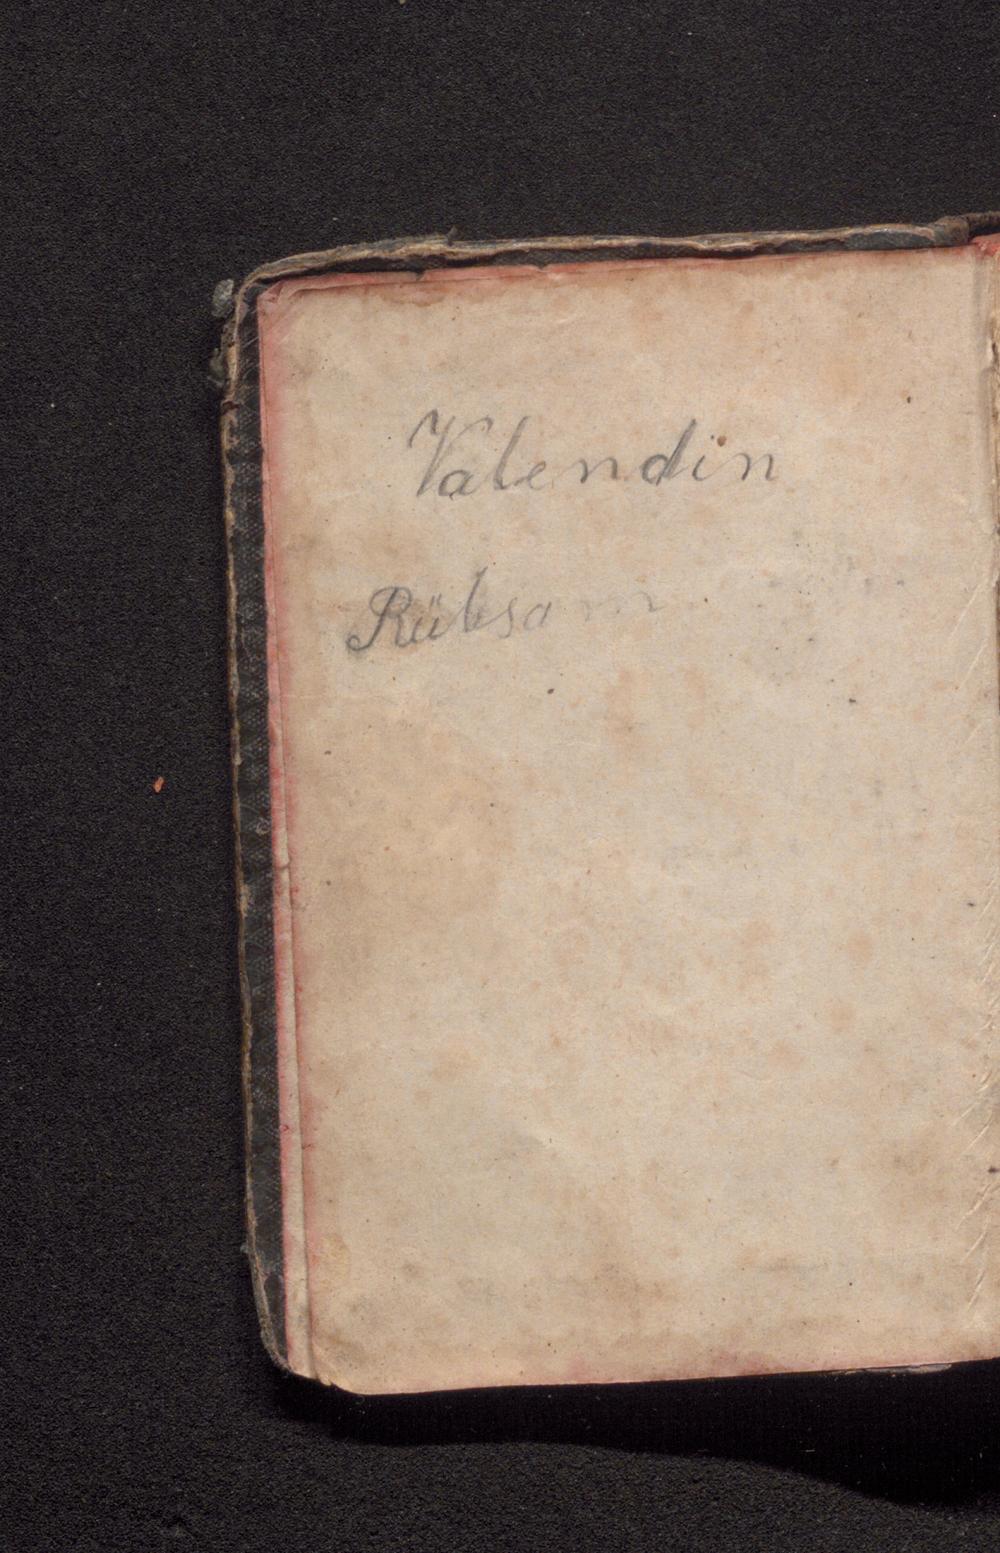 Valendin
Rübsam